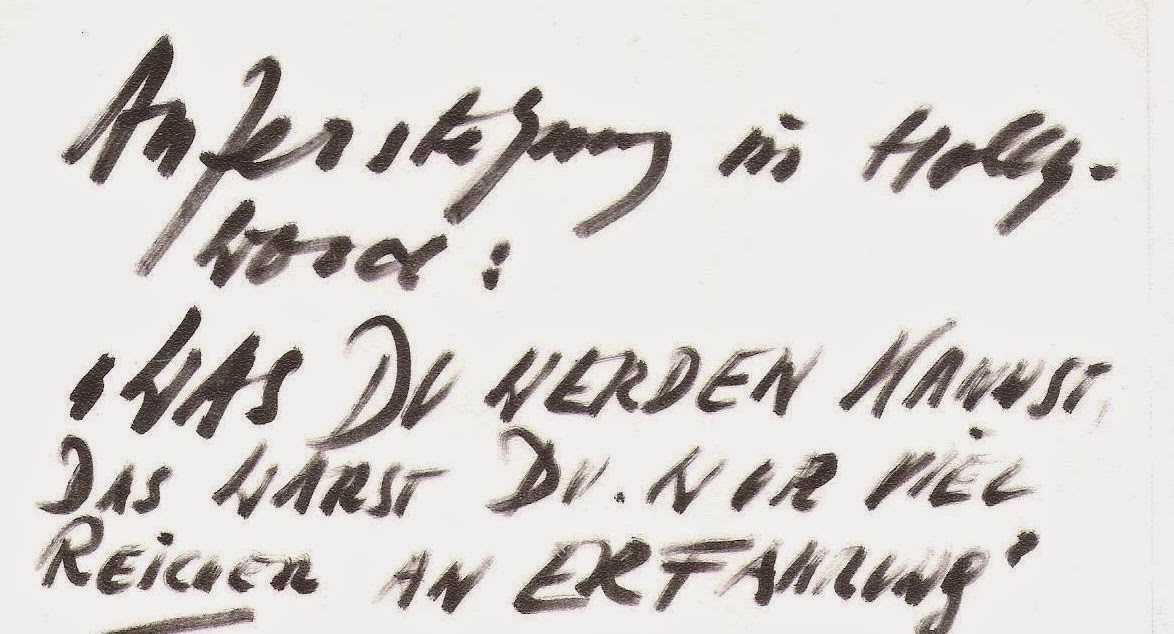 Auferstehung in Holly-
wood:
"WAS DU WERDEN KANNST,
DAS WARST DU. NUR VIEL
REICHER AN ERFAHRUNG"